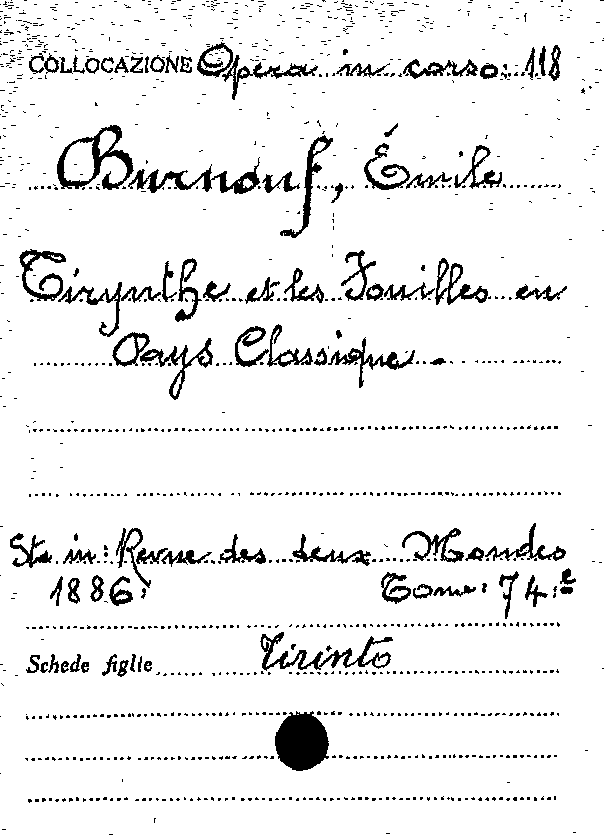 COLLOCAZIONE Opera in corso: 118
Burnouf, Émile
Tirynthe et les Fouilles en
Pays Classique.
Sta in: Revue des deux Mondes
1886: Tome: 74.e
Schede figlie Tirinto